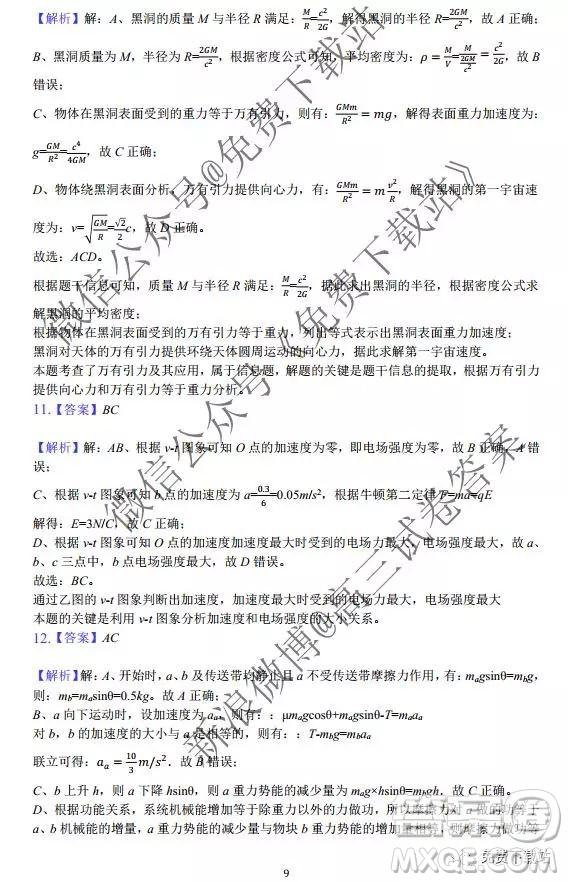 【解析】解：A、黑洞的质量 M 与半径 R 满足：M/R=c²/2G，解得黑洞的半径 R=2GM/c²，故 A 正确；
B、黑洞质量为 M，半径为 R=2GM/c²，根据密度公式可知，平均密度为：ρ=M/V=M/(2GM/c²)=c²/2G，故 B
错误；
C、物体在黑洞表面受到的重力等于万有引力，则有：GMm/R²=mg，解得表面重力加速度为：
g=GM/R²=c⁴/4GM，故 C 正确；
D、物体绕黑洞表面分析，万有引力提供向心力，有：GMm/R²=m v²/R，解得黑洞的第一宇宙速
度为：v=√(GM/R)=√2/2 c，故 D 正确。
故选：ACD。
根据题干信息可知，质量 M 与半径 R 满足：M/R=c²/2G，据此求出黑洞的半径，根据密度公式求
解黑洞的平均密度；
根据物体在黑洞表面受到的万有引力等于重力，列出等式表示出黑洞表面重力加速度；
黑洞对天体的万有引力提供环绕天体圆周运动的向心力，据此求解第一宇宙速度。
本题考查了万有引力及其应用，属于信息题，解题的关键是题干信息的提取，根据万有引力
提供向心力和万有引力等于重力分析。
11.【答案】BC
【解析】解：AB、根据 v-t 图象可知 O 点的加速度为零，即电场强度为零，故 B 正确，A 错
误；
C、根据 v-t 图象可知 b 点的加速度为 a=0.3/6=0.05m/s²，根据牛顿第二定律 F=ma=qE
解得：E=3N/C，故 C 正确；
D、根据 v-t 图象可知 O 点的加速度加速度最大时受到的电场力最大，电场强度最大，故 a、
b、c 三点中，b 点电场强度最大，故 D 错误。
故选：BC。
通过乙图的 v-t 图象判断出加速度，加速度最大时受到的电场力最大，电场强度最大
本题的关键是利用 v-t 图象分析加速度和电场强度的大小关系。
12.【答案】AC
【解析】解：A、开始时，a、b 及传送带均静止且 a 不受传送带摩擦力作用，有：mₐgsinθ=m_bg，
则：m_b=mₐsinθ=0.5kg。故 A 正确；
B、a 向下运动时，设加速度为 aₐ，则有：：μmₐgcosθ+mₐgsinθ-T=mₐaₐ
对 b，b 的加速度的大小与 a 是相等的，则有：：T-m_bg=m_baₐ
联立可得：aₐ=10/3 m/s²．故 B 错误；
C、b 上升 h，则 a 下降 hsinθ，则 a 重力势能的减少量为 mₐg×hsinθ=m_bgh．故 C 正确。
D、根据功能关系，系统机械能增加等于除重力以外的力做功，所以摩擦力对 a 做的功等于
a、b 机械能的增量，a 重力势能的减少量与物块 b 重力势能的增加量相等，则摩擦力做功等
9
微信公众号@免费下载站
微信公众号《免费下载站》
新浪微博@高三试卷答案
免费下载站
MMXZZ.COM